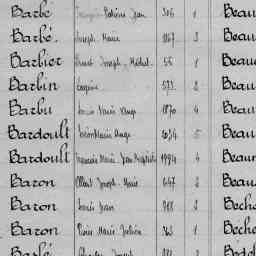 Barbé Jean 306 1 Beau
Barbé Joseph Marie 1167 3 Beau
Barbier Ernest Joseph Michel 56 1 Beau
Barbin Eugène 573 2 Beau
Barbu Louis Marie Ange 1870 4 Beau
Bardoult Léon Marie Ange 2034 5 Beau
Bardoult François Marie Jean Baptiste 1994 4 Beau
Baron Albert Joseph Marie 647 2 Beau
Baron Louis Jean 918 2 Beche
Baron Pierre Marie Julien 1 Beche
Joseph